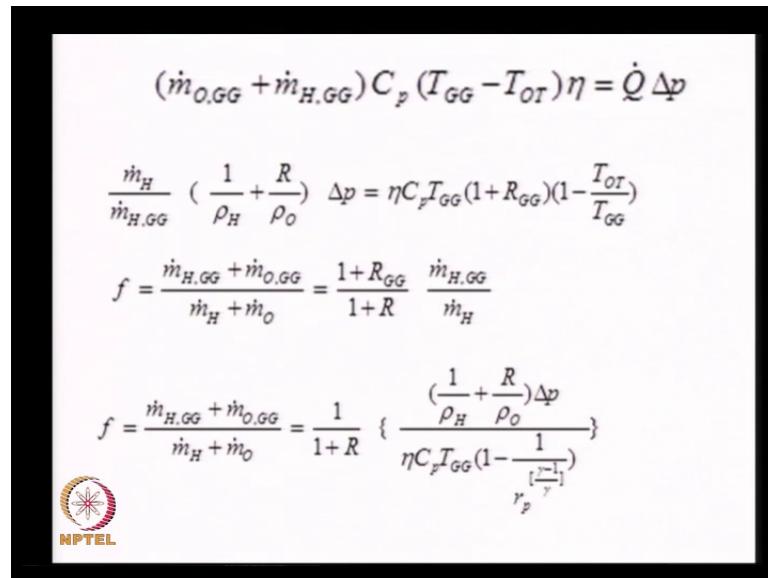 (ṁ_{O,GG} + ṁ_{H,GG}) C_p (T_{GG} − T_{OT}) η = Q̇ Δp
\frac{ṁ_H}{ṁ_{H,GG}} ( \frac{1}{ρ_H} + \frac{R}{ρ_O} ) Δp = ηC_pT_{GG}(1 + R_{GG})(1 − \frac{T_{OT}}{T_{GG}})
f = \frac{ṁ_{H,GG} + ṁ_{O,GG}}{ṁ_H + ṁ_O} = \frac{1 + R_{GG}}{1 + R} \frac{ṁ_{H,GG}}{ṁ_H}
f = \frac{ṁ_{H,GG} + ṁ_{O,GG}}{ṁ_H + ṁ_O} = \frac{1}{1 + R} { \frac{(\frac{1}{ρ_H} + \frac{R}{ρ_O})Δp}{ηC_pT_{GG}(1 − \frac{1}{r_p^{[\frac{γ−1}{γ}]}})} }
NPTEL